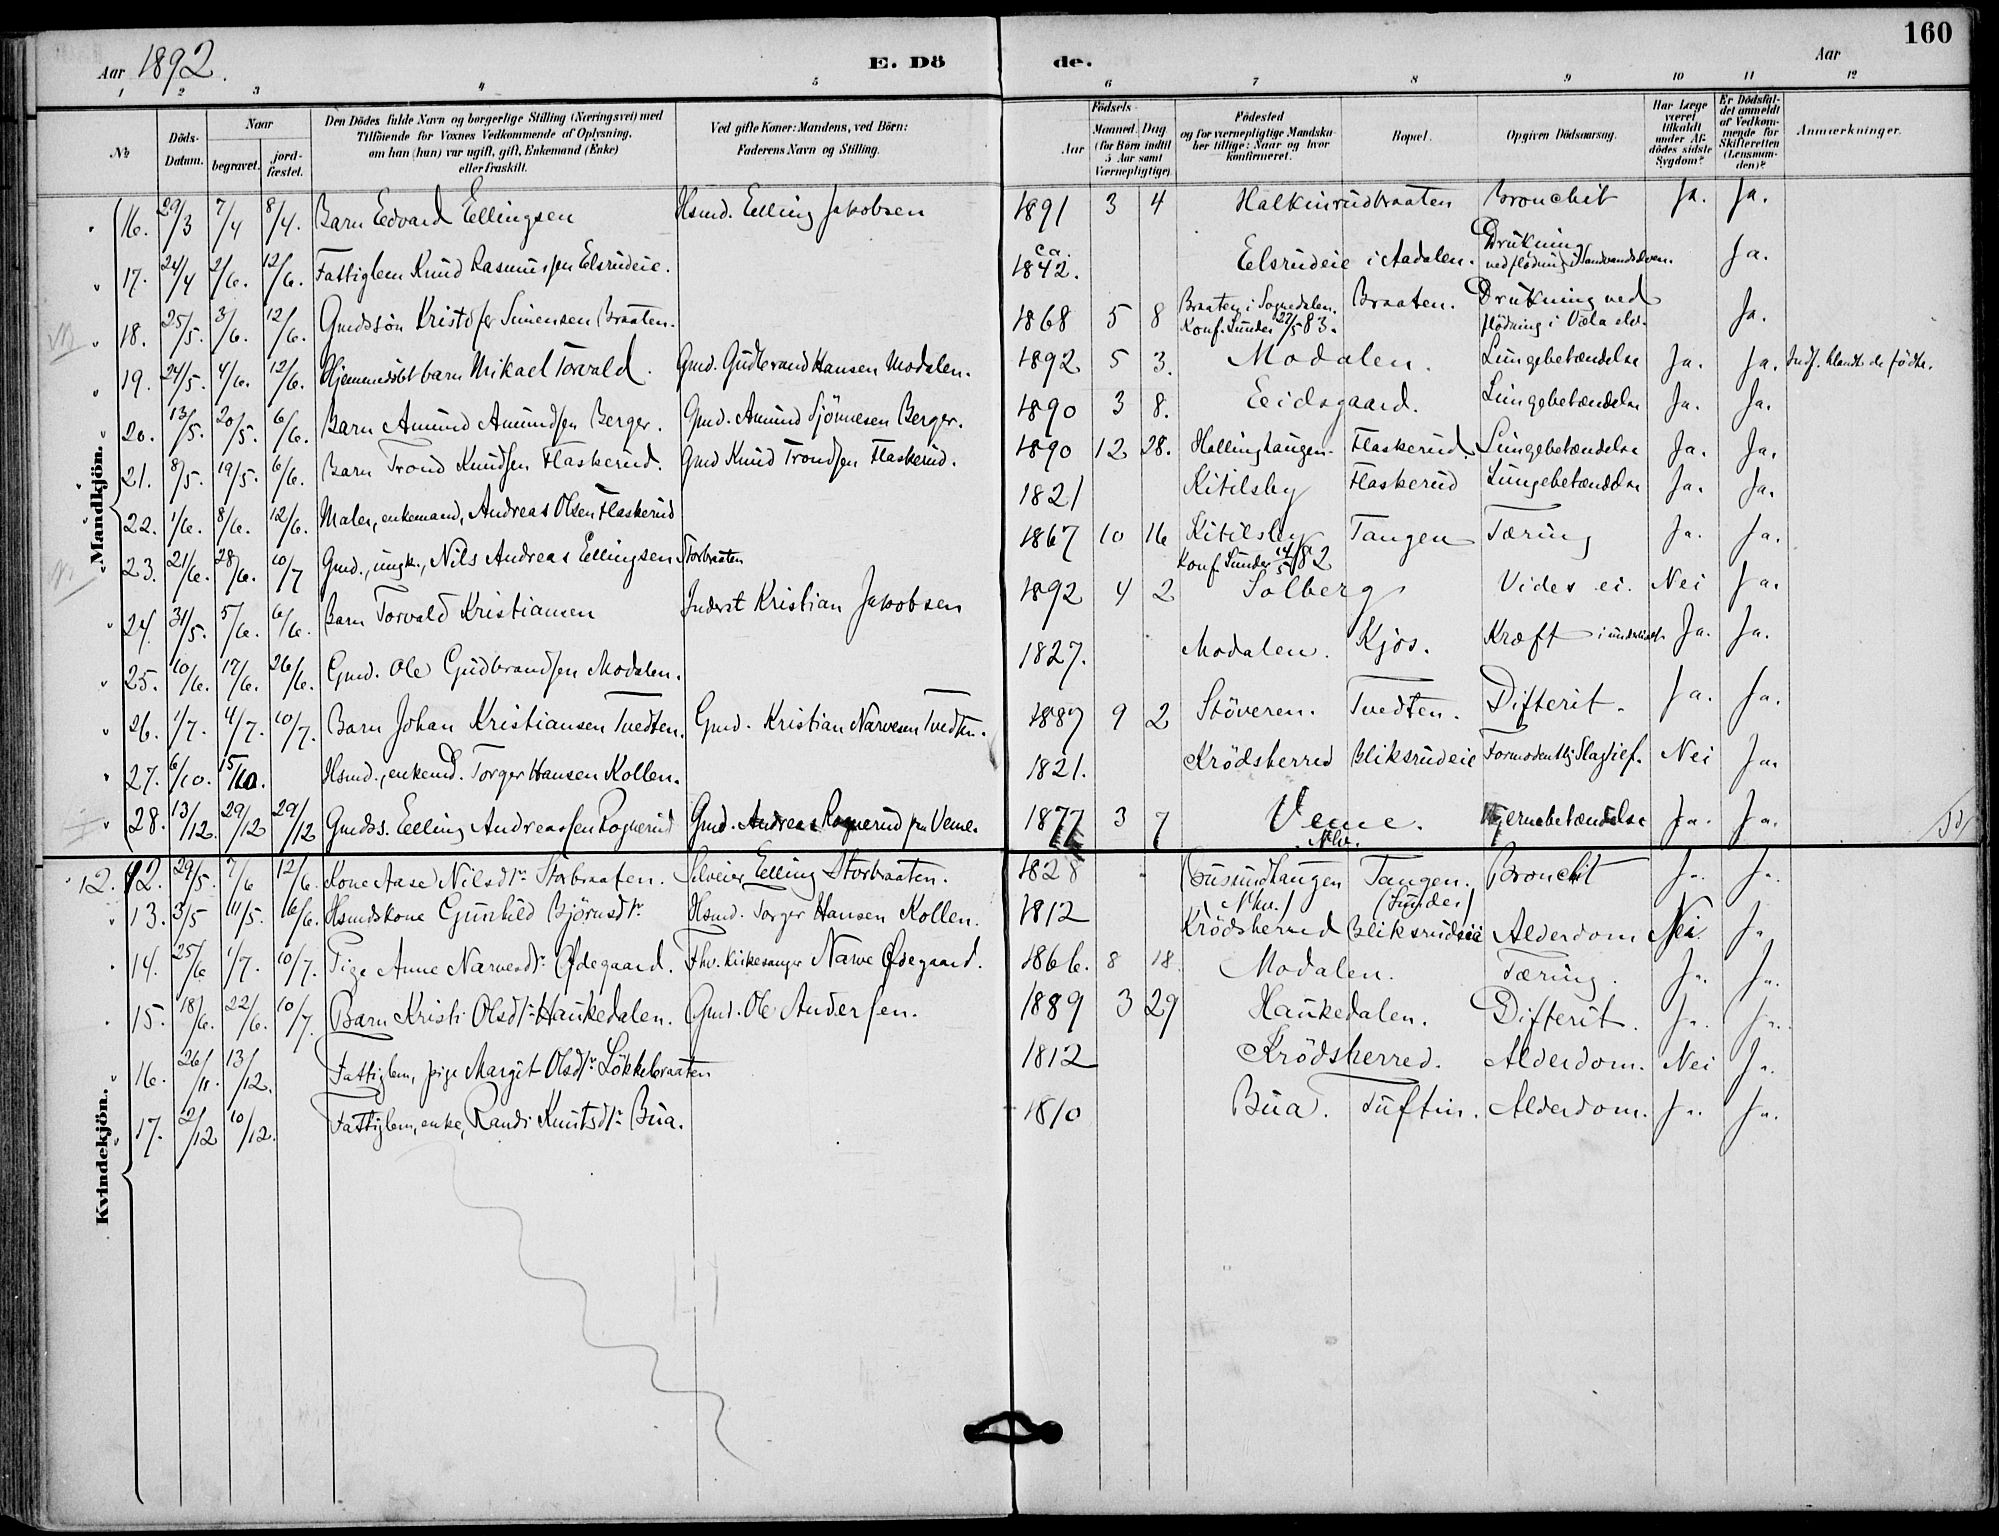 160
Aar 1892.
E. Döde.
Aar
1 2 3 4 5 6 7 8 9 10 11 12
№
Döds-Datum.
Naar
begravet. jord-fæstet.
Den Dödes fulde Navn og borgerlige Stilling (Næringsvei) med
Tilföiende for Voxnes Vedkommende af Oplysning,
om han (hun) var ugift, gift, Enkemand (Enke)
eller fraskilt.
Ved gifte Koner: Mandens, ved Börn:
Faderens Navn og Stilling.
Födsels-
Aar Maaned. Dag
(for Börn indtil
5 Aar samt
Værnepligtige)
Födested
og for værnepligtige Mandska-
ber tillige: Naar og hvor
konfirmeret.
Bopæl.
Opgiven Dödsaarsag.
Har Læge
været
tilkaldt
under Af-
dödes sidste
Sygdom?
Er Dödsfal-
det anmeldt
af Vedkom-
mende for
Skifteretten
(Lensman-
den)?
Anmærkninger.
Mandkjön.
16. 29/3 7/4 8/4. Barn Edvard Ellingsen Hsmd. Elling Jakobsen 1891 3 4 Halkinrudbraaten Bronchit Ja. Ja.
17. 24/4 2/6. 12/6. Fattiglem Knud Rasmussen Elsrudeie. ca. 1842. Elsrudeie i Aadalen. Drukning ved flödning i Ja.
18. 25/5. 3/6. 12/6. Gmdssön Kristofer Simensen Braaten. 1868 5 8 Braaten i Sognedalen. Konf. Lunder 22/5 83. Braaten. Drukning ved flödning i Væla elv. Ja.
19. 24/5. 4/6. 12/6. Hjemmedöbt barn Mikael Torvald. Gmd. Gudbrand Hansen Modalen. 1892 5 3. Modalen. Lungebetændelse Ja. Ja. Indf. blandt de födte.
20. 13/5. 20/5. 6/6. Barn Amund Amundsen Berger. Gmd. Amund Sjönnesen Berger. 1890 3 8. Eidsgaard. Lungebetændelse Ja. Ja.
21. 8/5. 19/5. 6/6. Barn Trond Knudsen Flaskerud. Gmd Knud Trondsen Flaskerud. 1890 12 28. Hollinghaugen. Flaskerud. Lungebetændelse Ja. Ja.
22. 1/6. 8/6. 12/6. Maler, enkemand, Andreas Olsen Flaskerud 1821 Kitilsby Flaskerud Lungebetændelse Ja. Ja.
23. 21/6. 28/6. 10/7 Gmd., ungk., Nils Andreas Ellingsen Storbraaten 1867 10 16 Kitilsby Konf. Lunder 14/5 82 Tangen Tæring Ja. Ja.
24. 31/5. 5/6. 6/6. Barn Torvald Kristiansen Inderst Kristian Jakobsen 1892 4 2 Solberg Vides ei. Nei Ja.
25. 10/6. 17/6. 26/6. Gmd. Ole Gudbrandsen Modalen. 1827. Modalen. Kjös. Kræft i underlivet. Ja. Ja.
26. 1/7. 4/7. 10/7. Barn Johan Kristiansen Tvedten. Gmd. Kristian Narvesen Tvedten. 1887 9 2 Stöveren. Tvedten. Difterit. Ja. Ja.
27. 6/10. 15/10. Hsmd., enkemd. Torger Hansen Kollen. 1821. Krödsherred Bliksrudeie Formodentlig Slagtilf. Nei Ja.
28. 13/12. 29/12 29/12 Gmdss. Elling Andreassen Rognerud Gmd. Andreas Rognerud paa Veme. 1877 3 7 Veme. Hjernebetændelse Ja. Ja.
Kvindekjön.
12. 12. 29/5. 7/6 12/6. Kone Aase Nilsdtr. Storbraaten. Selveier Elling Storbraaten. 1828 Gusundhaugen Tangen. (Lunder) Bronchit Ja. Ja.
13. 3/5 11/5. 6/6. Hsmdskone Gunhild Björnsdtr Hsmd. Torger Hansen Kollen. 1812 Krödsherred Bliksrudeie Alderdom Nei. Ja.
14. 25/6 1/7. 10/7. Pige Anne Narvesdtr. Ødegaard. Fhv. kirkesanger Narve Ødegaard. 1866. 8 18. Modalen. Tæring. Ja. Ja.
15. 18/6. 22/6. 10/7. Barn Kristi Olsdtr. Haukedalen. Gmd. Ole Andersen. 1889 3 29 Haukedalen. Difterit. Ja. Ja.
16. 26/11. 13/12. Fattiglem, pige Margit Olsdtr. Lökkebraaten 1812 Krödsherred. Alderdom. Nei Ja.
17. 2/12 10/12. Fattiglem, enke, Randi Knutsdtr. Bua. 1810 Bua. Tuftin. Alderdom. Ja. Ja.